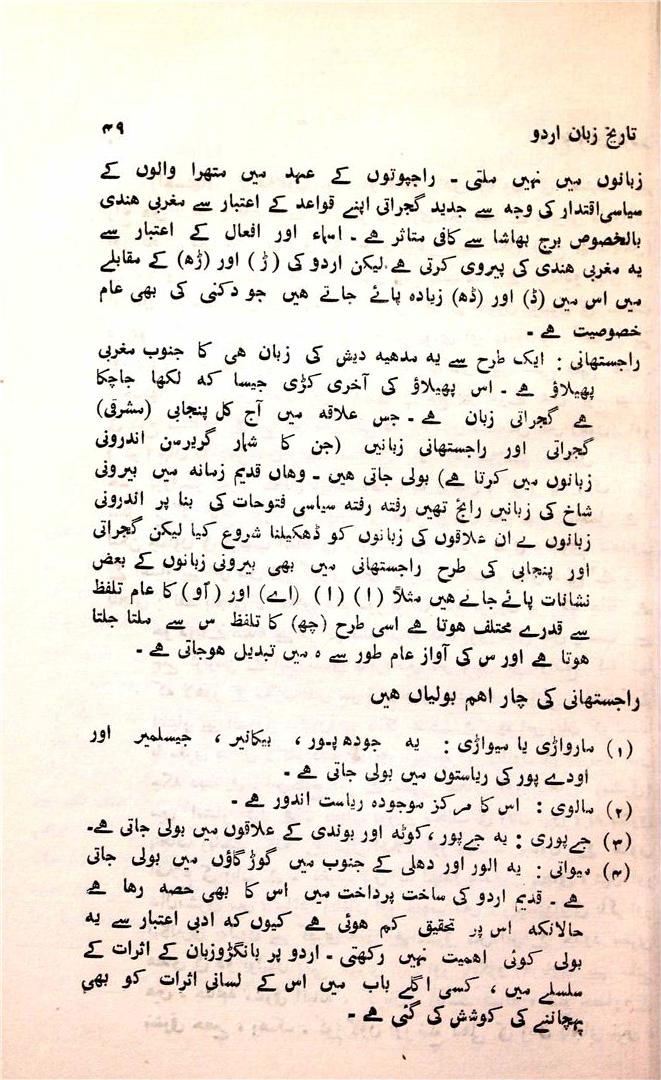 تاریخ زبان اردو
۴۹
زبانوں میں نہیں ملتی ۔ راجپوتوں کے عہد میں متھرا والوں کے
سیاسی اقتدار کی وجہ سے جدید گجراتی اپنے قواعد کے اعتبار سے مغربی ھندی
بالخصوص برج بھاشا سے کافی متاثر ہے ۔ اسماء اور افعال کے اعتبار سے
یہ مغربی ھندی کی پیروی کرتی ہے لیکن اردو کی (ڑ) اور (ڑھ) کے مقابلے
میں اس میں (ڈ) اور (ڈھ) زیادہ پائے جاتے ھیں جو دکنی کی بھی عام
خصوصیت ہے ۔
راجستھانی : ایک طرح سے یہ مدھیہ دیش کی زبان ھی کا جنوب مغربی
پھیلاؤ ہے ۔ اس پھیلاؤ کی آخری کڑی جیسا کہ لکھا جاچکا
ہے گجراتی زبان ہے ۔ جس علاقہ میں آج کل پنجابی (مشرقی)
گجراتی اور راجستھانی زبانیں (جن کا شمار گریرسن اندرونی
زبانوں میں کرتا ہے) بولی جاتی ھیں ۔ وھاں قدیم زمانہ میں بیرونی
شاخ کی زبانیں رائج تھیں رفتہ رفتہ سیاسی فتوحات کی بنا پر اندرونی
زبانوں نے ان علاقوں کی زبانوں کو ڈھکیلنا شروع کیا لیکن گجراتی
اور پنجابی کی طرح راجستھانی میں بھی بیرونی زبانوں کے بعض
نشانات پائے جاتے ھیں مثلاً (ا) (ا) (اے) اور (آو) کا عام تلفظ
سے قدرے مختلف ھوتا ہے اسی طرح (چھ) کا تلفظ س سے ملتا جلتا
ھوتا ہے اور س کی آواز عام طور سے ہ میں تبدیل ھوجاتی ہے ۔
راجستھانی کی چار اھم بولیاں ھیں
(۱) مارواڑی یا میواڑی : یہ جودھ پور ، بیکانیر ، جیسلمیر اور
اودے پور کی ریاستوں میں بولی جاتی ہے ۔
(۲) مالوی : اس کا مرکز موجودہ ریاست اندور ہے ۔
(۳) جےپوری : یہ جےپور ، کوٹہ اور بوندی کے علاقوں میں بولی جاتی ہے۔
(۴) میواتی : یہ الور اور دھلی کے جنوب میں گوڑگاؤں میں بولی جاتی
ہے ۔ قدیم اردو کی ساخت پرداخت میں اس کا بھی حصہ رھا ہے
حالانکہ اس پر تحقیق کم ھوئی ہے کیوں کہ ادبی اعتبار سے یہ
بولی کوئی اھمیت نہیں رکھتی ۔ اردو پر بانگڑوزبان کے اثرات کے
سلسلے میں ، کسی اگلے باب میں اس کے لسانی اثرات کو بھی
پہچاننے کی کوشش کی گئی ہے ۔